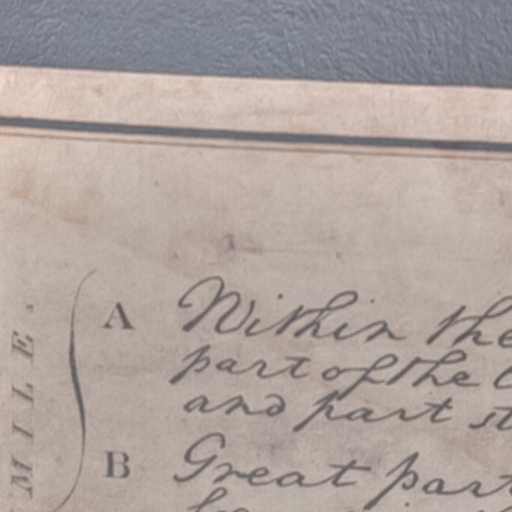 MILE.
A Within the
part of the
and part st
B Great part